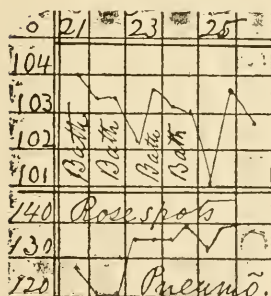 ° 21 23 25
104
103
102
101
Bath Bath Bath Bath
140 Rose spots
130
120 Pneumō.